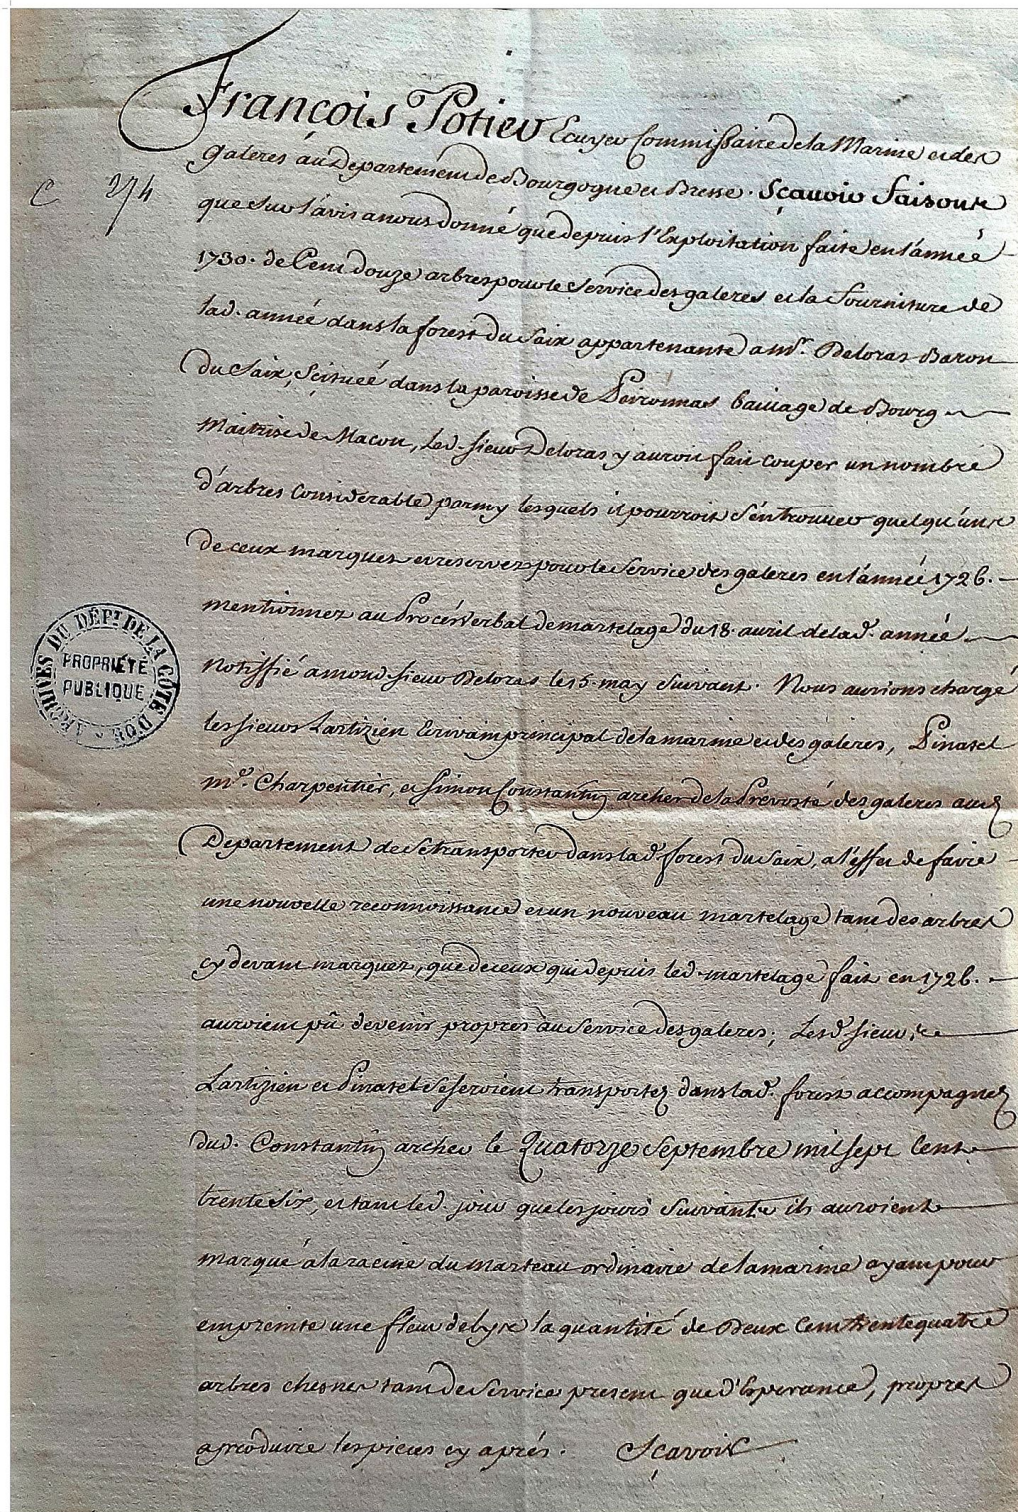 François Potier Ecuyer Commissaire de la Marine et des
Galeres au Departement de Bourgogne et Bresse. Sçavoir faisons
C 274
que sur l'avis a nous donné que depuis l'Exploitation faite en l'année
1730. de Cent douze arbres pour le service des galeres et la fourniture de
lad. année dans la forest du Saix appartenante a Mr. Deloras Baron
du Saix, scituée dans la paroisse de Peironnas bailiage de Bourg
Maitrise de Macon, led. sieur Deloras y auroit fait couper un nombre
d'arbres considerable parmy lesquels il pourroit s'en trouver quelqu'uns
de ceux marques et reservez pour le service des galeres en l'année 1726.
mentionnez au Procés Verbal de martelage du 18. avril de lad. année
Notiffié a mond. sieur Deloras le 15. may suivant. Nous aurions chargé
les sieurs Lartizien Ecrivain principal de la marine et des galeres, Pinatel
me. Charpentier, et Simon Constantin archer de la Prevosté des galeres aud.
Departement de se transporter dans lad. forest du Saix, a l'effet de faire
une nouvelle reconnoissance et un nouveau martelage tant des arbres
cy devant marquez, que de ceux qui depuis led. martelage fait en 1726.
auroient pû devenir propres au service des galeres; Lesd. sieurs
Lartizien et Pinatel se seroient transportez dans lad. forest accompagnez
dud. Constantin archer le Quatorze Septembre mil sept cent
trente six, et tant led. jour que les jours suivants ils auroient
marqué a la racine du marteau ordinaire de la marine ayant pour
empreinte une fleur de lys la quantité de Deux Cent trente quatre
arbres chesnes tant de service present que d'Esperance, propres
a produire les pieces cy aprés. Sçavoir
ARCHIVES DU DÉPT. DE LA CÔTE D'OR
PROPRIÉTÉ
PUBLIQUE